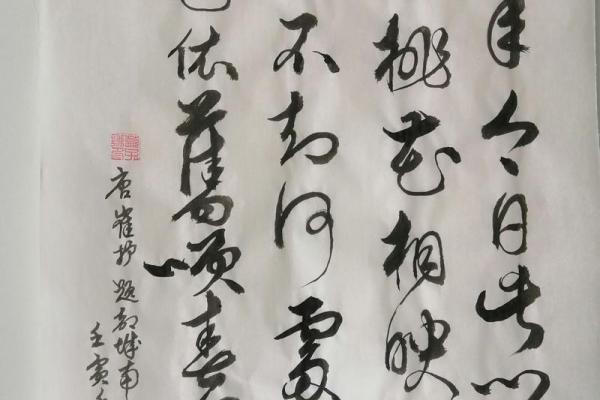 年今日此门
桃花相映
不知何處
依舊咲春
唐崔护题都城南
壬寅